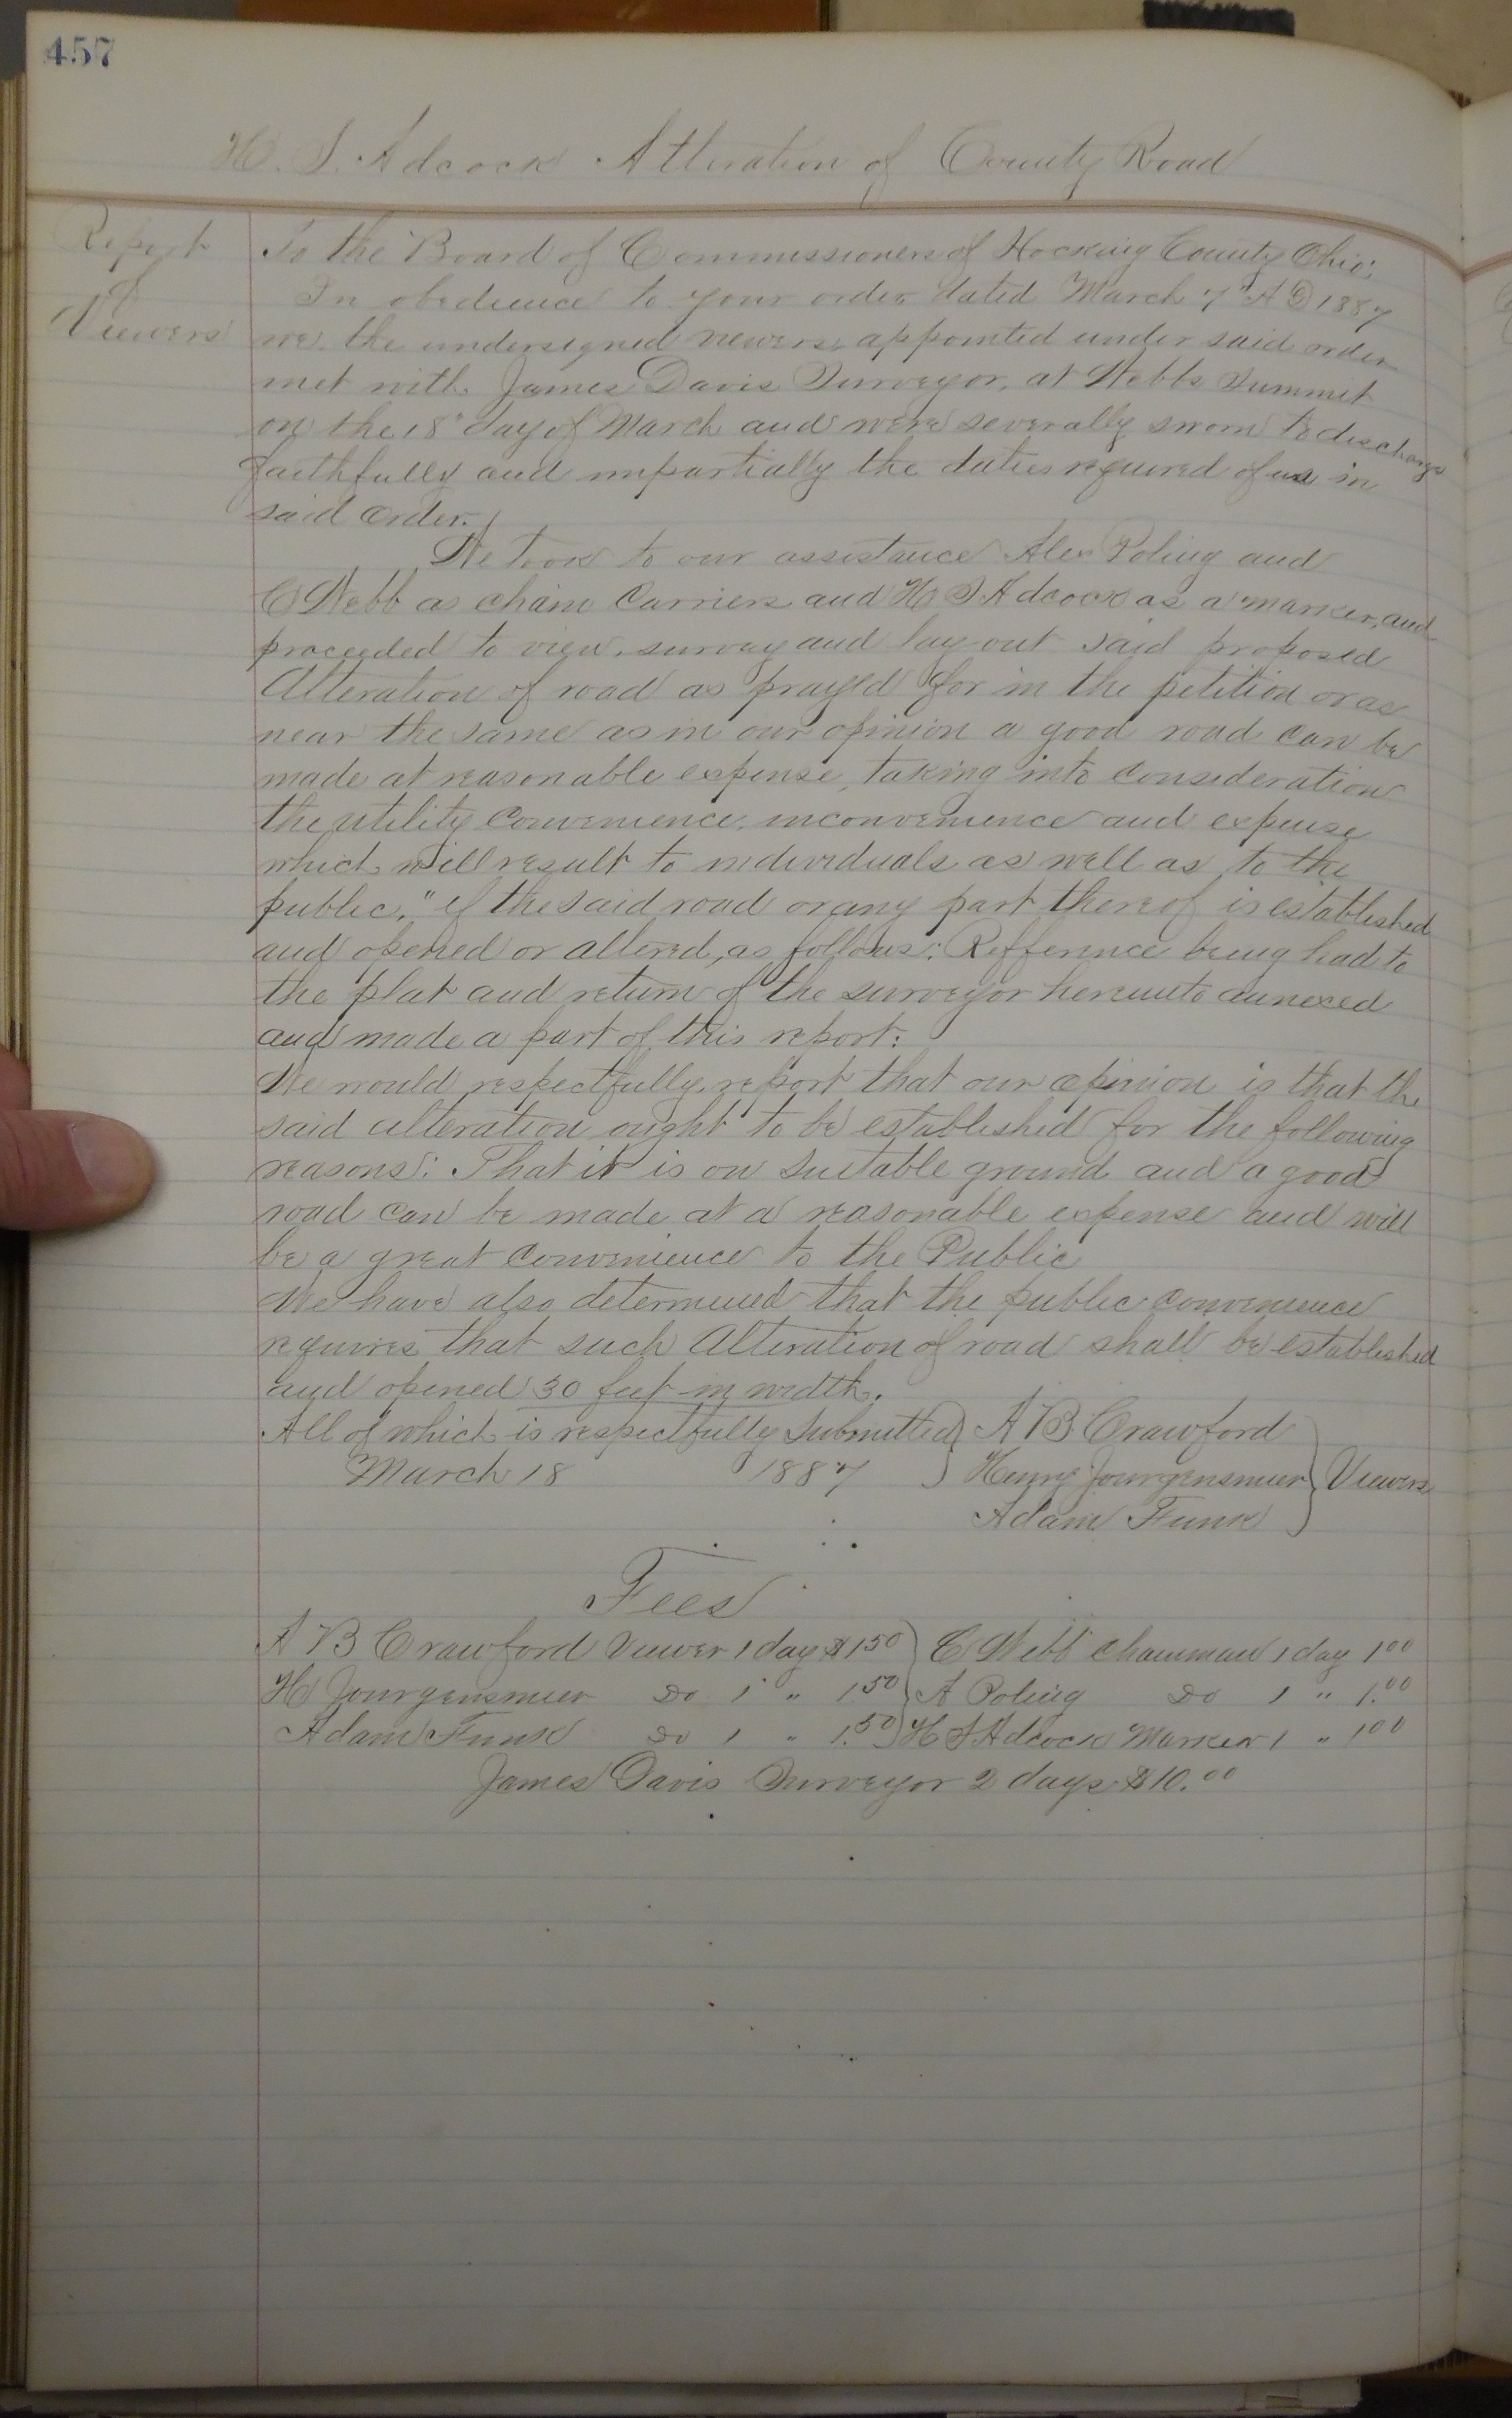 457
H. S. Adcock Alteration of County Road
Report
of
Viewers
To the Board of Commissioners of Hocking County Ohio:
In obedience to your order dated March 7" A D 1887
we the undersigned viewers, appointed under said order
met with James Davis Surveyor, at Webbs Summit
on the 18" day of March and were severally sworn to discharge
faithfully and impartially the duties required of us in
said order.
We took to our assistance Alex Poling and
C Webb as chain Carriers and H S Adcock as a marker, and
proceeded to view, survey and lay out said proposed
Alteration of road as prayed for in the petition or as
near the same as in our opinion a good road can be
made at reasonable expense, taking into consideration
the utility convenience, inconvenience and expense
which will result to individuals as well as to the
public," if the said road or any part thereof is established
and opened or altered, as follows: Refference being had to
the plat and return of the surveyor hereunto annexed
and made a part of this report:
We would respectfully report that our opinion is that the
said alteration ought to be established for the following
reasons: That it is on suitable ground and a good
road can be made at a reasonable expense and will
be a great convenience to the Public
We have also determined that the public convenience
requires that such Alteration of road shall be established
and opened 30 feet in width.
All of which is respectfully Submitted } A B Crawford
March 18 1887 } Henry Jourgensmier } Viewers
Adam Funk
Fees
A B Crawford Viewer 1 day $1.50 } C Webb chainman 1 day 1.00
H Jourgensmier Do 1 " 1.50 } A Poling Do 1 " 1.00
Adam Funk Do 1 " 1.50 } H S Adcock Marker 1 " 1.00
James Davis Surveyor 2 days $10.00